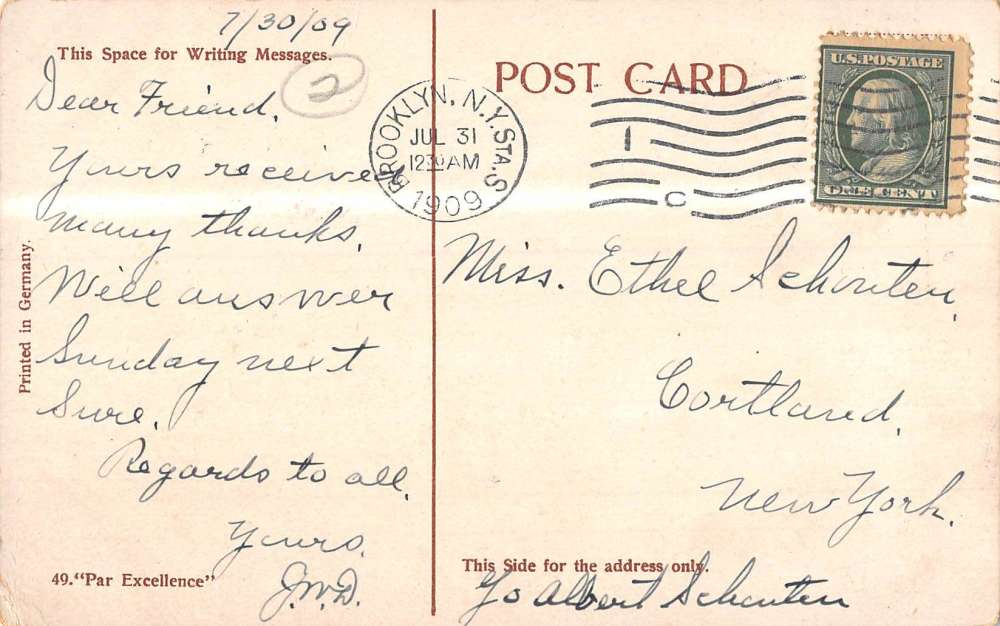 7/30/09
This Space for Writing Messages.
2
Dear Friend,
Yours received
many thanks.
Will answer
Sunday next
Sure.
Regards to all.
Yours.
J.W.D.
Printed in Germany.
49."Par Excellence"
POST CARD
BROOKLYN, N.Y. STA. S
JUL 31
12 30 AM
1909
1
C
U.S. POSTAGE
ONE CENT
Miss. Ethel Schouten,
Cortland,
New York.
This Side for the address only.
℅ Albert Schouten